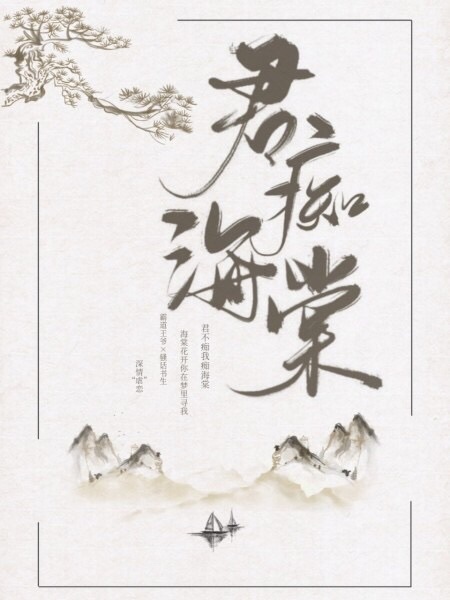 君痴
海棠
君不痴我痴海棠
海棠花开你在梦里寻我
霸道王爷×骚话书生
深情“虐恋”